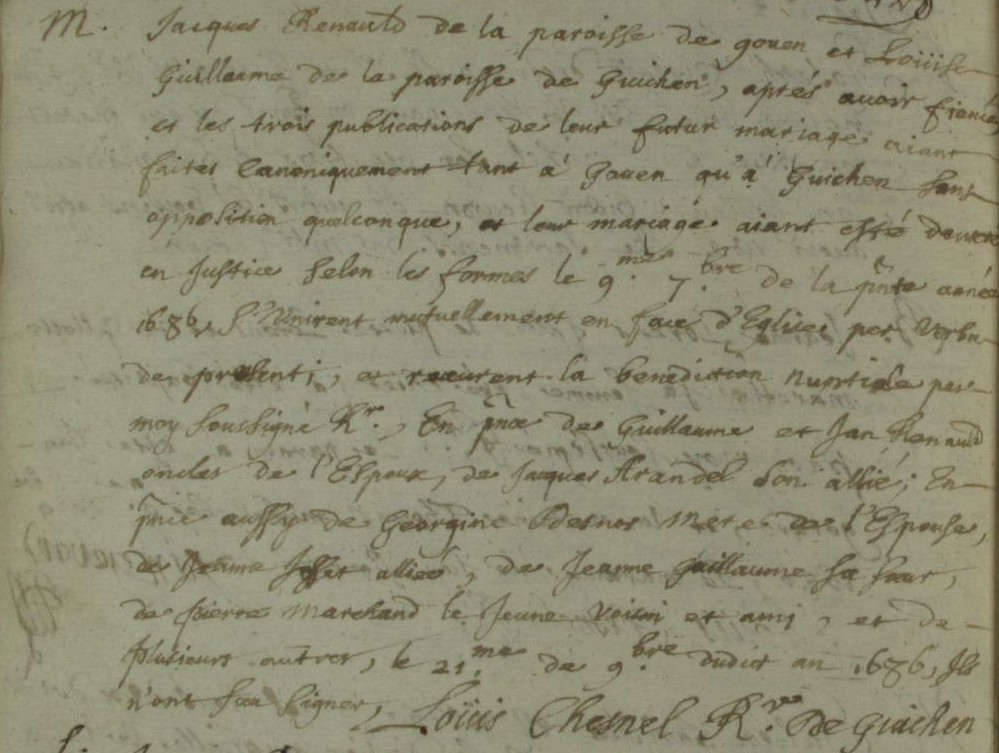 M. Jacques Renauld de la paroisse de goven et Loüise
Guillaume de la paroisse de Guichen, aprés avoir fiancé
et les trois publications de leur futur mariage aiant
faites Canoniquement tant à Goven qu'à Guichen sans
opposition quelconque, et leur mariage aiant esté
en Justice selon les formes le 9.me 7.bre de la p̃nte année
1686, S'Unirent mutuellement en face d'Eglise per Verba
de presenti, et receurent la benediction nuptiale par
moy soussigné Rr., En p̃nce de Guillaume et Jan Renauld
oncles de l'Espoux, de Jacques Arandel son allié; En
p̃nce aussy de Georgine Desnos Mere de l'Espouse,
de Jeanne alliée, de Jeanne Guillaume sa sœur,
de pierre Marchand le Jeune voisin et ami, et de
plusieurs autres, le 21.me de 9.bre dudict an 1686, Ils
n'ont sceu signer, Loüis Chesnel R. De Guichen